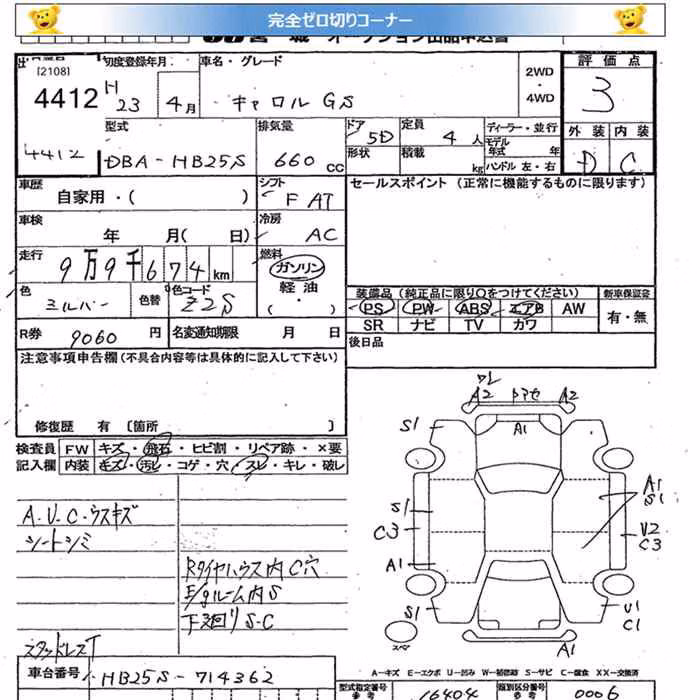 完全ゼロ切りコーナー
オークション出品申込書
[2108]
4412
4412
初度登録年月
H 23 4月
車名・グレード
キャロル GS
2WD
・
4WD
評価点
3
外装 内装
D C
型式
DBA-HB25S
排気量
660 cc
ドア
5D
形状
定員
4人
積載
kg
ディーラー・並行
モデル
年式 年
ハンドル 左・右
車歴
自家用・( )
シフト
F AT
セールスポイント (正常に機能するものに限ります)
車検
年 月( 日)
冷房
AC
走行
9万9千674km
燃料
ガソリン
軽油
( ・ )
色
シルバー
色替
色コード
Z2S
装備品 (純正品に限り○をつけてください)
PS PW ABS エアB AW
SR ナビ TV カワ
新車保証書
有・無
R券 9060 円
名変通知期限 月 日
後日品
注意事項申告欄(不具合内容等は具体的に記入して下さい)
修復歴 有 [箇所 ]
検査員 FW キズ・飛石・ヒビ割・リペア跡・×要
記入欄 内装 キズ・汚レ・コゲ・穴・スレ・キレ・破レ
A.U.C.ウスキズ
シートシミ
RタイヤハウスC穴
E/gルーム内S
下廻りS・C
スタッドレスT
ワレ
A2 トアセ A2
S1 A1
S1
C3
A1
S1
A1
S1
V2
C3
U1
C1
スペア
A1
A-キズ E-エクボ U-凹み W-補修跡 S-サビ C-腐食 XX-交換済
車台番号 HB25S-714362
型式指定番号
参考
16404
類別区分番号
参考
0006